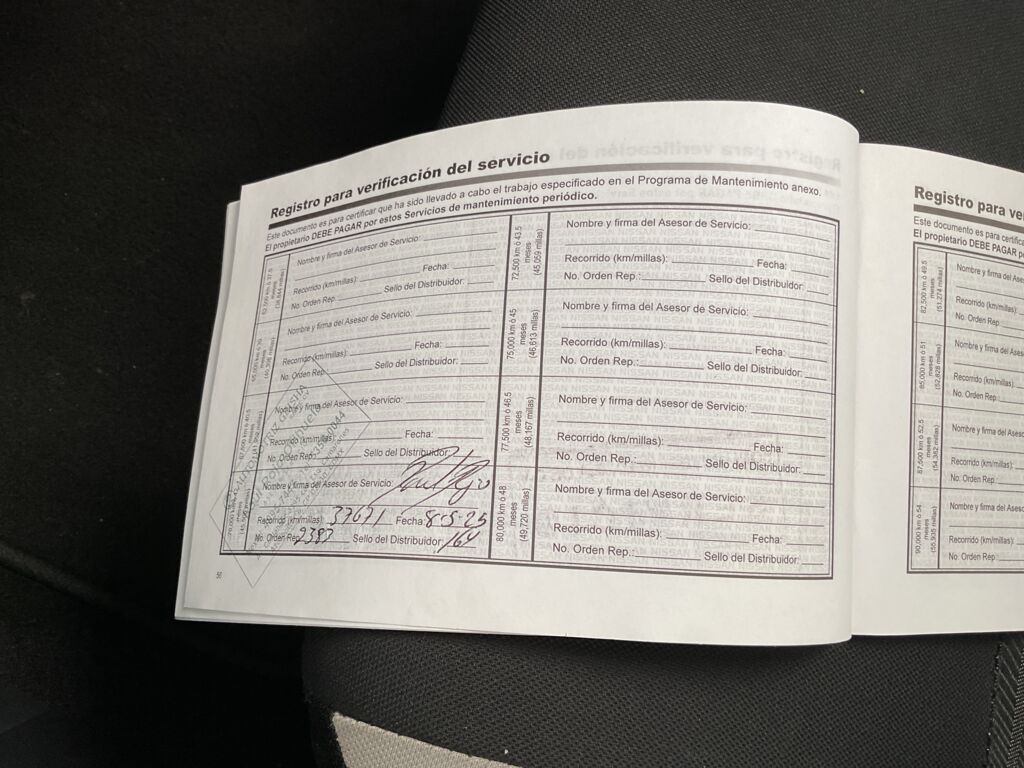 Registro para verificación del servicio
Este documento es para certificar que ha sido llevado a cabo el trabajo especificado en el Programa de Mantenimiento anexo.
El propietario DEBE PAGAR por estos Servicios de mantenimiento periódico.
Nombre y firma del Asesor de Servicio:
Recorrido (km/millas): Fecha:
No. Orden Rep.: Sello del Distribuidor:
Nombre y firma del Asesor de Servicio:
Recorrido (km/millas): Fecha:
No. Orden Rep. Sello del Distribuidor:
Nombre y firma del Asesor de Servicio:
Recorrido (km/millas): Fecha:
No. Orden Rep. Sello del Distribuidor:
Nombre y firma del Asesor de Servicio:
Recorrido (km/millas) 37671 Fecha: 8-5-25
No. Orden Rep. 2383 Sello del Distribuidor: 164
72,500 km ó 43.5
meses
(45,059 millas)
Nombre y firma del Asesor de Servicio:
Recorrido (km/millas): Fecha:
No. Orden Rep.: Sello del Distribuidor:
75,000 km ó 45
meses
(46,613 millas)
Nombre y firma del Asesor de Servicio:
Recorrido (km/millas): Fecha:
No. Orden Rep.: Sello del Distribuidor:
77,500 km ó 46.5
meses
(48,167 millas)
Nombre y firma del Asesor de Servicio:
Recorrido (km/millas): Fecha:
No. Orden Rep.: Sello del Distribuidor:
80,000 km ó 48
meses
(49,720 millas)
Nombre y firma del Asesor de Servicio:
Recorrido (km/millas): Fecha:
No. Orden Rep.: Sello del Distribuidor:
56
Registro para ve
Este documento es para certificar
El propietario DEBE PAGAR p
82,500 km ó 49.5
meses
(51,274 millas)
Nombre y firma del Ases
Recorrido (km/millas):
No. Orden Rep.
85,000 km ó 51
meses
(52,828 millas)
Nombre y firma del Aseso
Recorrido (km/millas):
No. Orden Rep.
87,500 km ó 52.5
meses
(54,382 millas)
Nombre y firma del Aseso
Recorrido (km/millas):
No. Orden Rep.
90,000 km ó 54
meses
(55,935 millas)
Nombre y firma del Aseso
Recorrido (km/millas):
No. Orden Rep.: